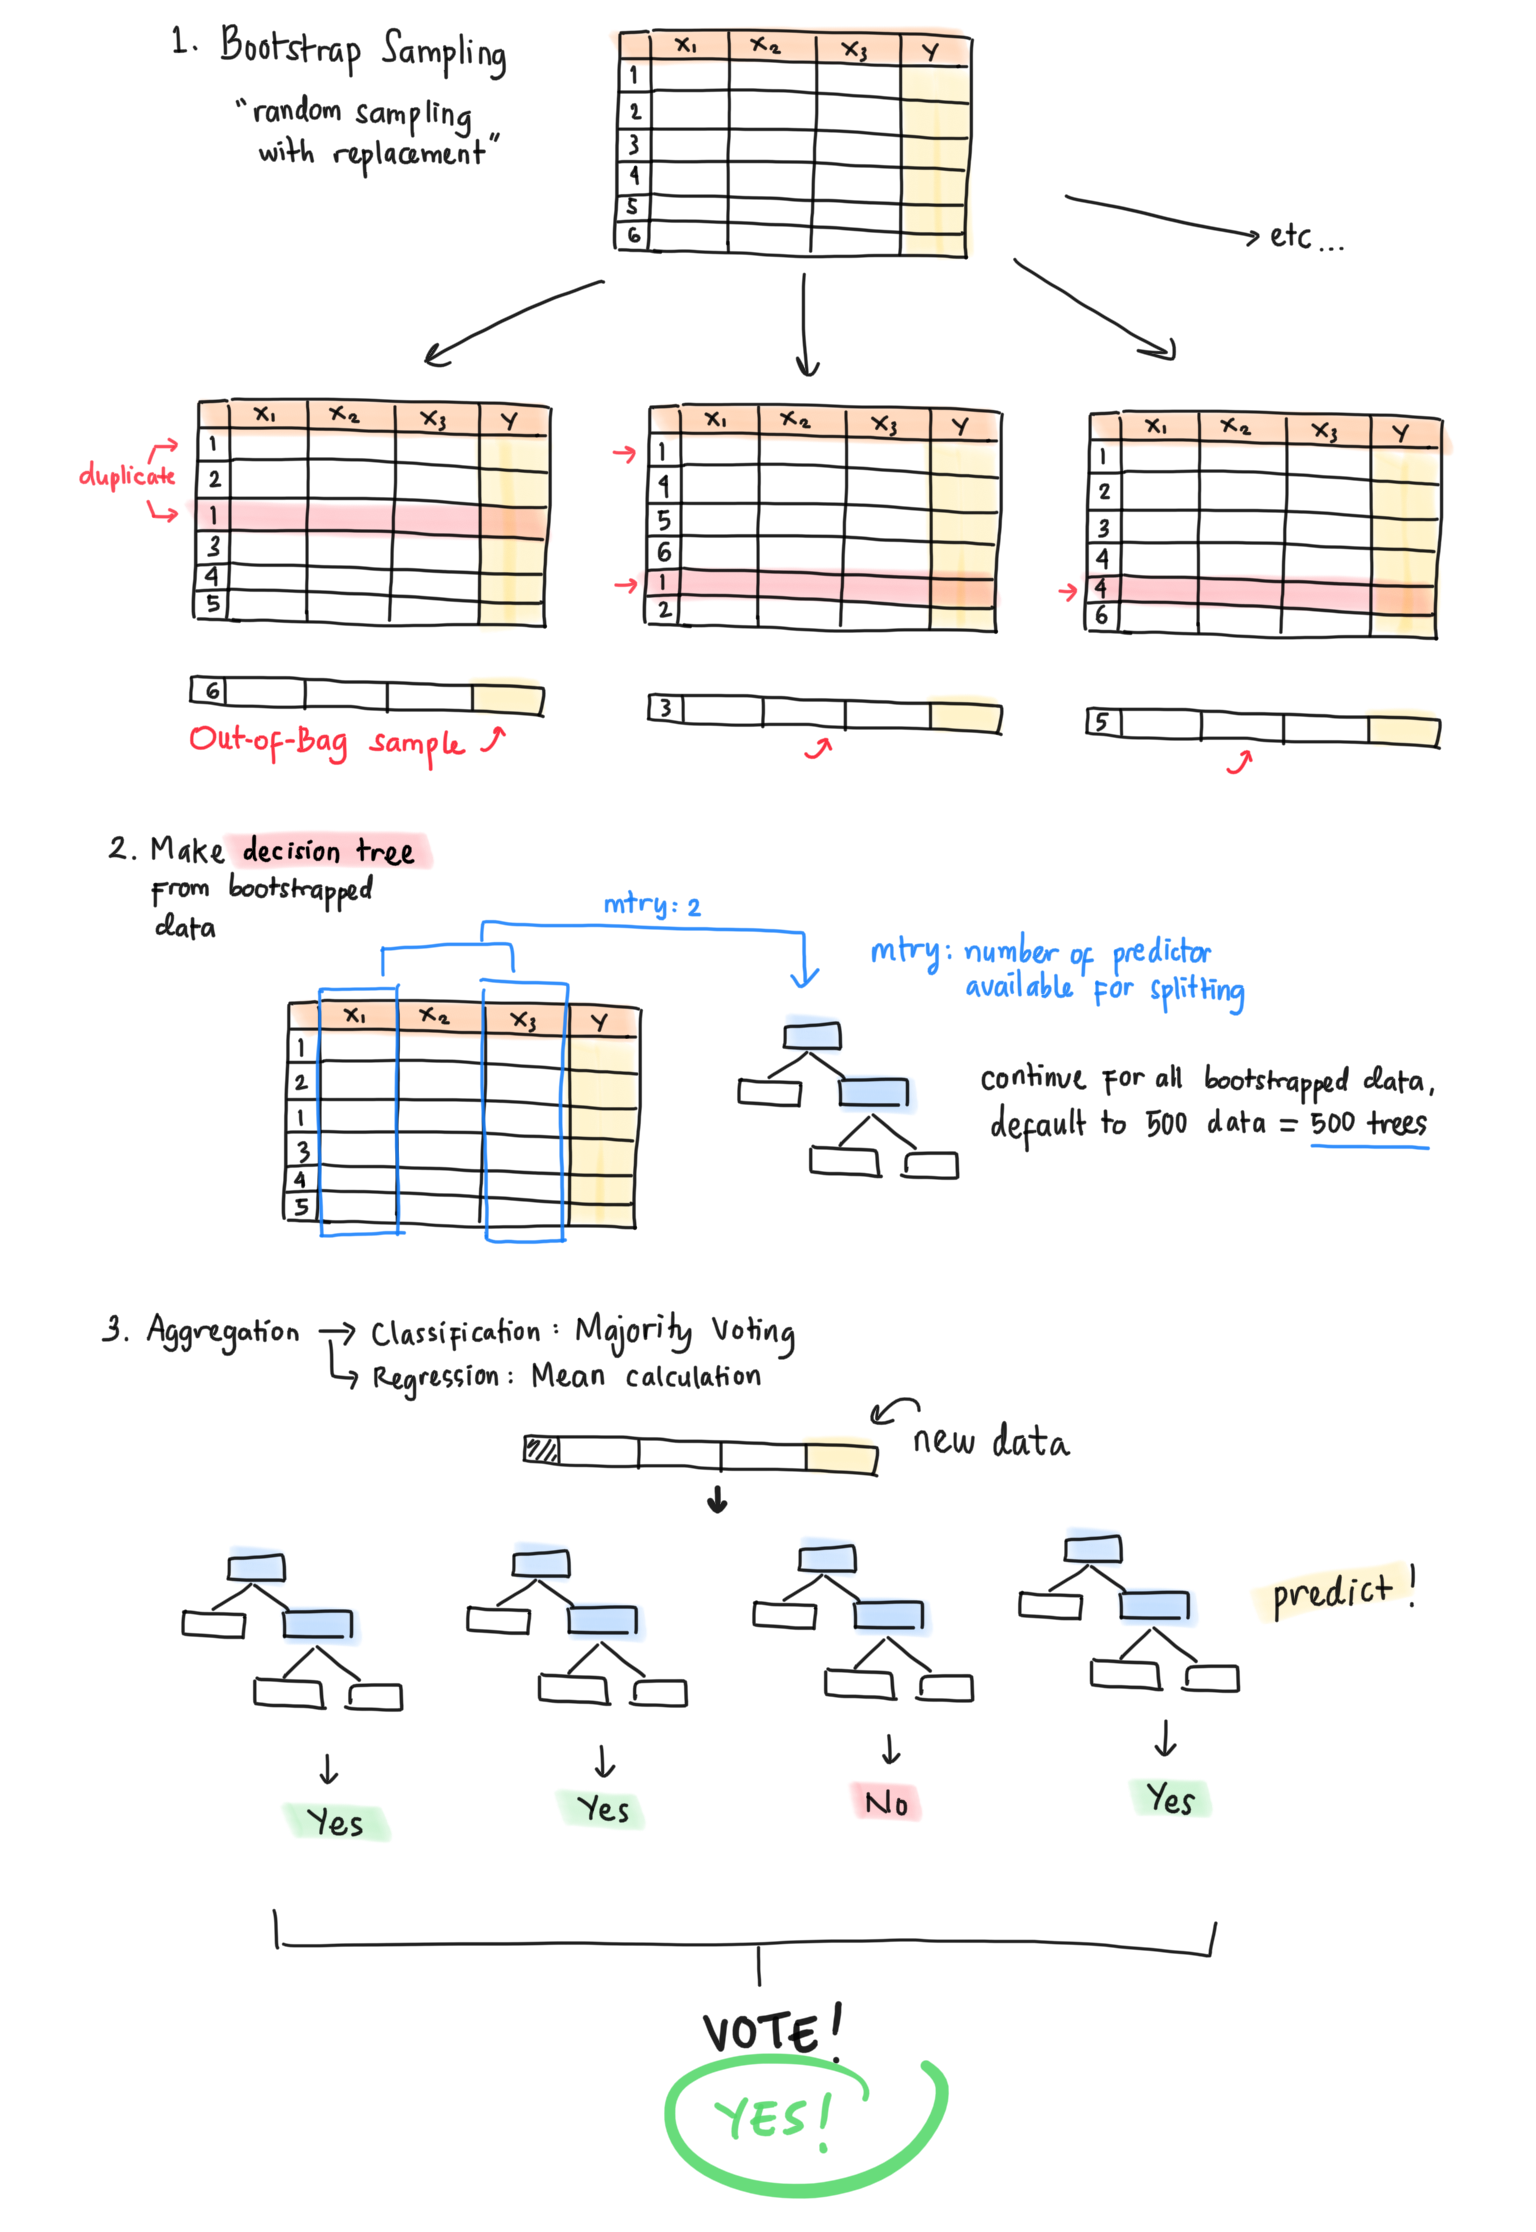 1. Bootstrap Sampling
"random sampling
with replacement"
X₁ X₂ X₃ Y
1
2
3
4
5
6
etc...
duplicate
X₁ X₂ X₃ Y
1
2
1
3
4
5
X₁ X₂ X₃ Y
1
4
5
6
1
2
X₁ X₂ X₃ Y
1
2
3
4
4
6
6
Out-of-Bag sample
3
5
2. Make decision tree
from bootstrapped
data
mtry: 2
mtry: number of predictor
available for splitting
X₁ X₂ X₃ Y
1
2
1
3
4
5
continue for all bootstrapped data,
default to 500 data = 500 trees
3. Aggregation → Classification: Majority Voting
Regression: Mean calculation
new data
predict!
Yes
Yes
No
Yes
VOTE!
YES!